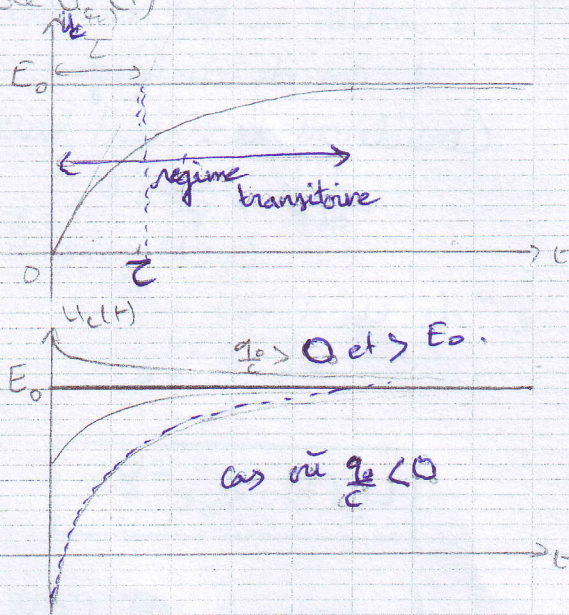 u_c
τ
E₀
régime
transitoire
0
τ
t
u_c(t)
q₀/C > 0 et > E₀.
E₀
cas où q₀/C < 0
t